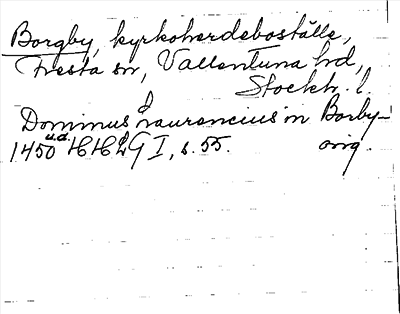 Borgby, kyrkoherdeboställe,
Fresta sn, Vallentuna hd,
Stockh. l.
Dominus Laurencius in Borby –
1450 u.d. HHLG I, s. 55. orig.